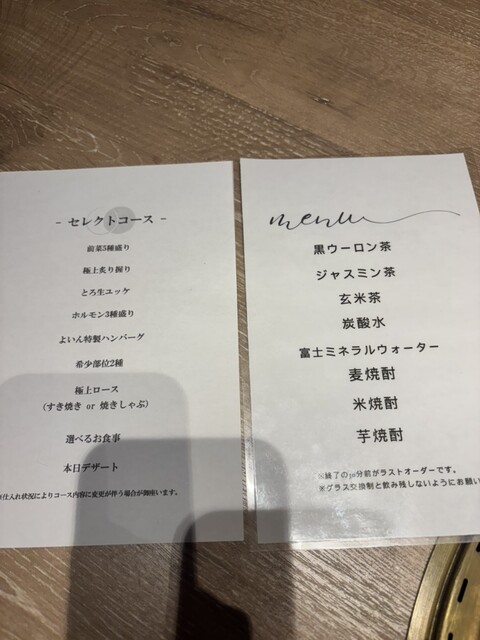 - セレクトコース -
前菜5種盛り
極上炙り握り
とろ生ユッケ
ホルモン3種盛り
よいん特製ハンバーグ
希少部位2種
極上ロース
(すき焼き or 焼きしゃぶ)
選べるお食事
本日デザート
※仕入れ状況によりコース内容に変更が伴う場合が御座います。
menu
黒ウーロン茶
ジャスミン茶
玄米茶
炭酸水
富士ミネラルウォーター
麦焼酎
米焼酎
芋焼酎
※終了の30分前がラストオーダーです。
※グラス交換制と飲み残しないようにお願い